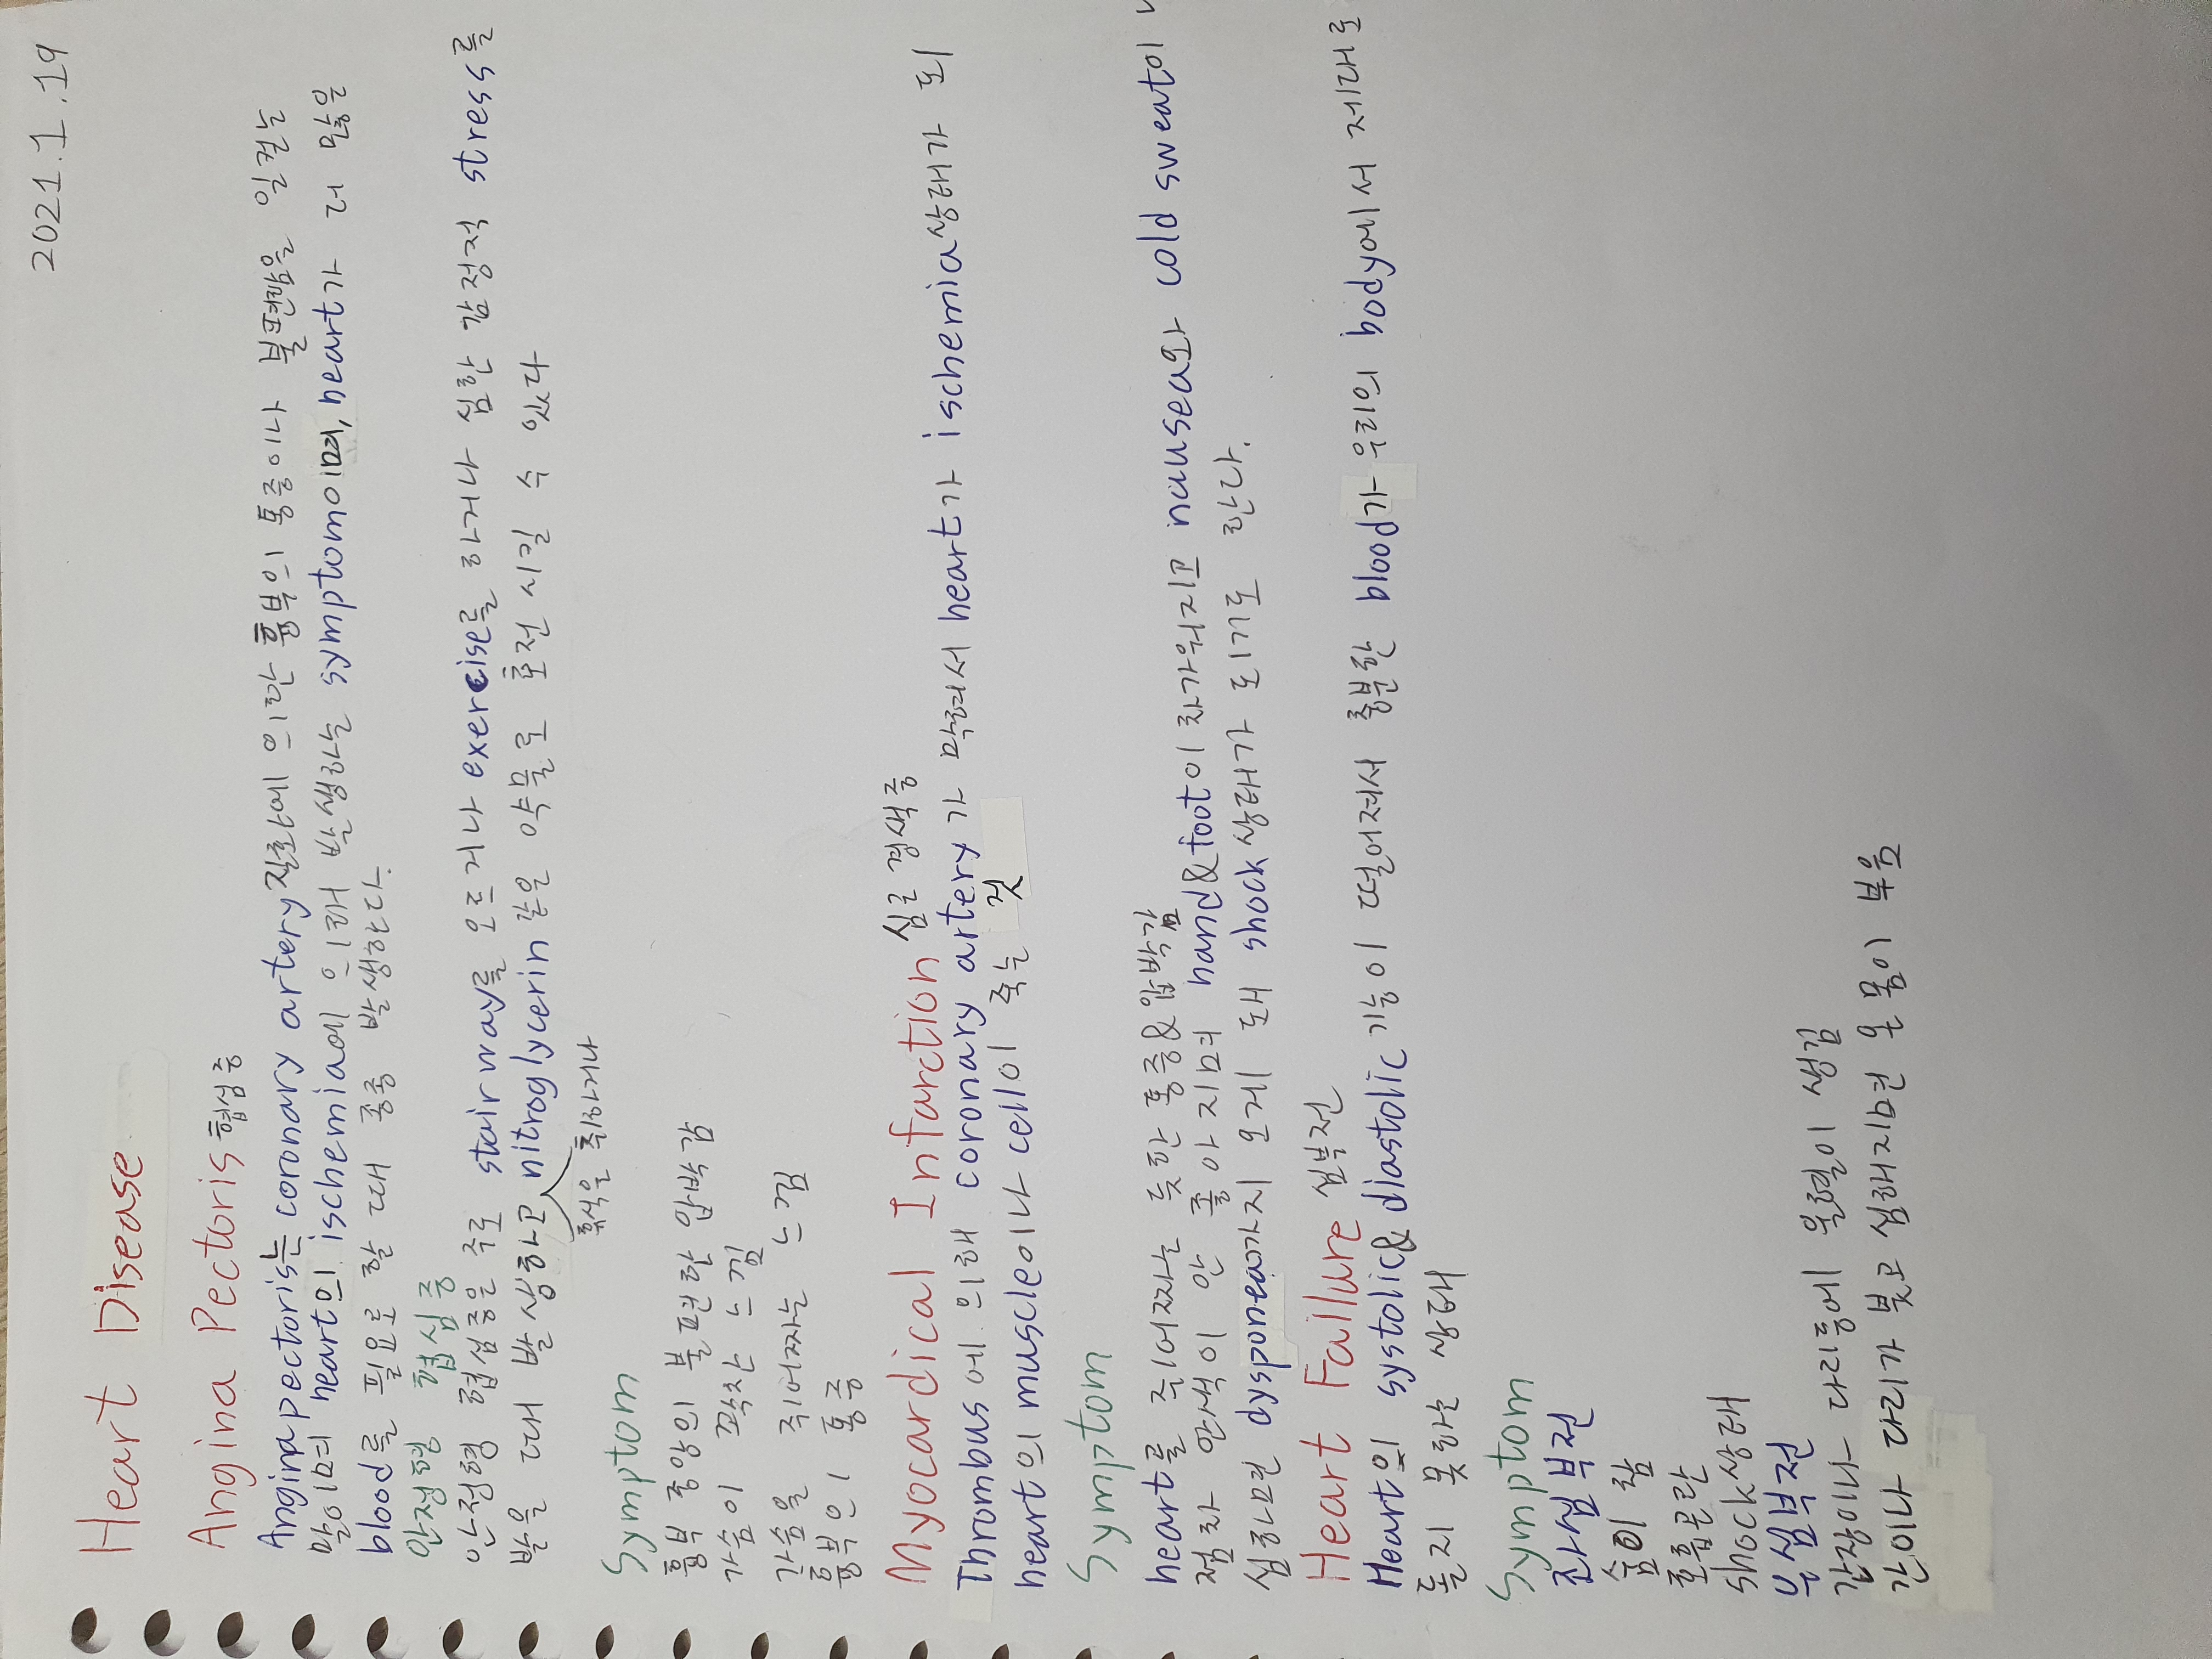 2021.1.19
Heart Disease
Angina Pectoris 협심증
Angina pectoris는 coronary artery질환에 의한 흉부의 통증이나 불편감을 일컫는
말이며 heart의 ischemia에 의해 발생하는 symptom이며, heart가 더 많은
blood를 필요로 할 때 종종 발생한다.
안정형 협심증
안전형 협심증은 주로 stairway를 오르거나 exercise를 하거나 심한 감정적 stress를
받을 때 발생하고 nitroglycerin 같은 약물로 호전 시킬 수 있다
휴식을 취하거나
Symptom
흉부 중앙의 불편한 압박감
가슴이 꽉찬 느낌
가슴을 쥐어짜는 느낌
흉부의 통증
Myocardical Infarction 심근경색증
Thrombus에 의해 coronary artery가 막혀서 heart가 ischemia상태가 되
heart의 muscle이나 cell이 죽는 것
Symptom
heart를 쥐어짜는 듯한 통증&압박감
점차 안색이 안 좋아지며 hand&foot이 차가워지고 nausea와 cold sweat이
심하면 dysponea까지 오게 돼 shock상태가 되기도 한다.
Heart Failure 심부전
Heart의 systolic&diastolic기능이 떨어져서 충분한 blood가 우리의 body에서 제대로
돌지 못하는 상태
Symptom
좌심부전
숨이 참
호흡곤란
shock상태
우심부전
간장이나 다리등에 울혈이 생김
간이나 다리가 붓고 심해지면 온 몸이 부음